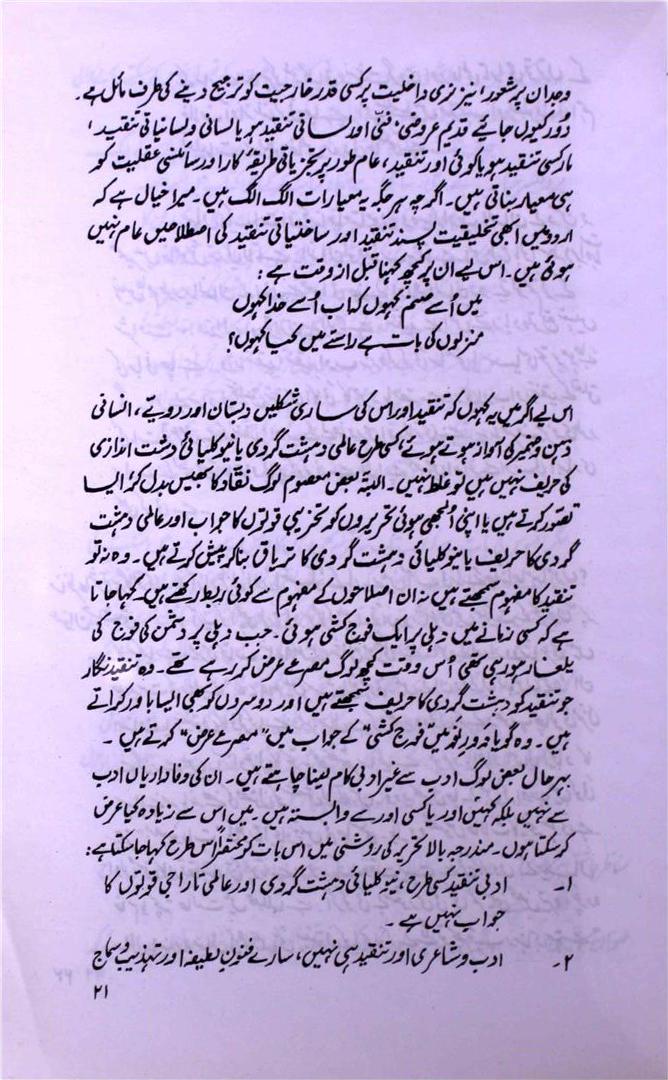 وجدان پر شعور، نیز نری داخلیت پر کسی قدر خارجیت کو ترجیح دینے کی طرف مائل ہے۔
دُور کیوں جائیے قدیم عروضی، فنّی اور لسانی تنقید ہو یا لسانی ولسانیاتی تنقید،
مارکسی تنقید ہو یا کوئی اور تنقید، عام طور پر تجزیاتی طریقۂ کار اور سائنسی عقلیت کو
ہی معیار بناتی ہیں۔ اگرچہ ہر جگہ یہ معیارات الگ الگ ہیں۔ میرا خیال ہے کہ
اردو میں ابھی تخلیقیت پسند تنقید اور ساختیاتی تنقید کی اصطلاحیں عام نہیں
ہوئی ہیں۔ اس لیے ان پر کچھ کہنا قبل از وقت ہے:
میں اُسے صنم کہوں کہ اب اُسے خدا کہوں
منزلوں کی بات ہے راستے میں کیا کہوں؟
اس لیے اگر میں یہ کہوں کہ تنقید اور اس کی ساری شکلیں دبستان اور رویے، انسانی
ذہن و ضمیر کی آواز ہوتے ہوئے، کسی طرح عالمی دہشت گردی یا نیو کلیائی دہشت اندازی
کی حریف نہیں ہیں تو غلط نہیں۔ البتہ بعض معصوم لوگ نقاد کا بھیس بدل کر ایسا
تصور کرتے ہیں یا اپنی اُلجھی ہوئی تحریروں کو تخریبی قوتوں کا جواب اور عالمی دہشت
گردی کا حریف یا نیو کلیائی دہشت گردی کا تریاق بنا کر پیش کرتے ہیں۔ وہ نہ تو
تنقید کا مفہوم سمجھتے ہیں نہ ان اصلاحوں کے مفہوم سے کوئی ربط رکھتے ہیں۔ کہا جاتا
ہے کہ کسی زمانے میں دہلی پر ایک فوج کشی ہوئی۔ جب دہلی پر دشمن کی فوج کی
یلغار ہو رہی تھی اُس وقت کچھ لوگ مصرعے عرض کر رہے تھے۔ وہ تنقید نگار
جو تنقید کو دہشت گردی کا حریف سمجھتے ہیں اور دوسروں کو بھی ایسا باور کراتے
ہیں۔ وہ گویا دورِ نو میں "فوج کشی" کے جواب میں "مصرعے عرض" کرتے ہیں۔
بہر حال بعض لوگ ادب سے غیر ادبی کام لینا چاہتے ہیں۔ ان کی وفاداریاں ادب
سے نہیں بلکہ کہیں اور یا کسی اور سے وابستہ ہیں۔ میں اس سے زیادہ کیا عرض
کر سکتا ہوں۔ مندرجہ بالا تحریر کی روشنی میں اس بات کو مختصراً اس طرح کہا جا سکتا ہے:
۱۔ ادبی تنقید کسی طرح، نیو کلیائی دہشت گردی اور عالمی تاراجی قوتوں کا
جواب نہیں ہے۔
۲۔ ادب و شاعری اور تنقید ہی نہیں، سارے فنونِ لطیفہ اور تہذیب و سماج
۲۱